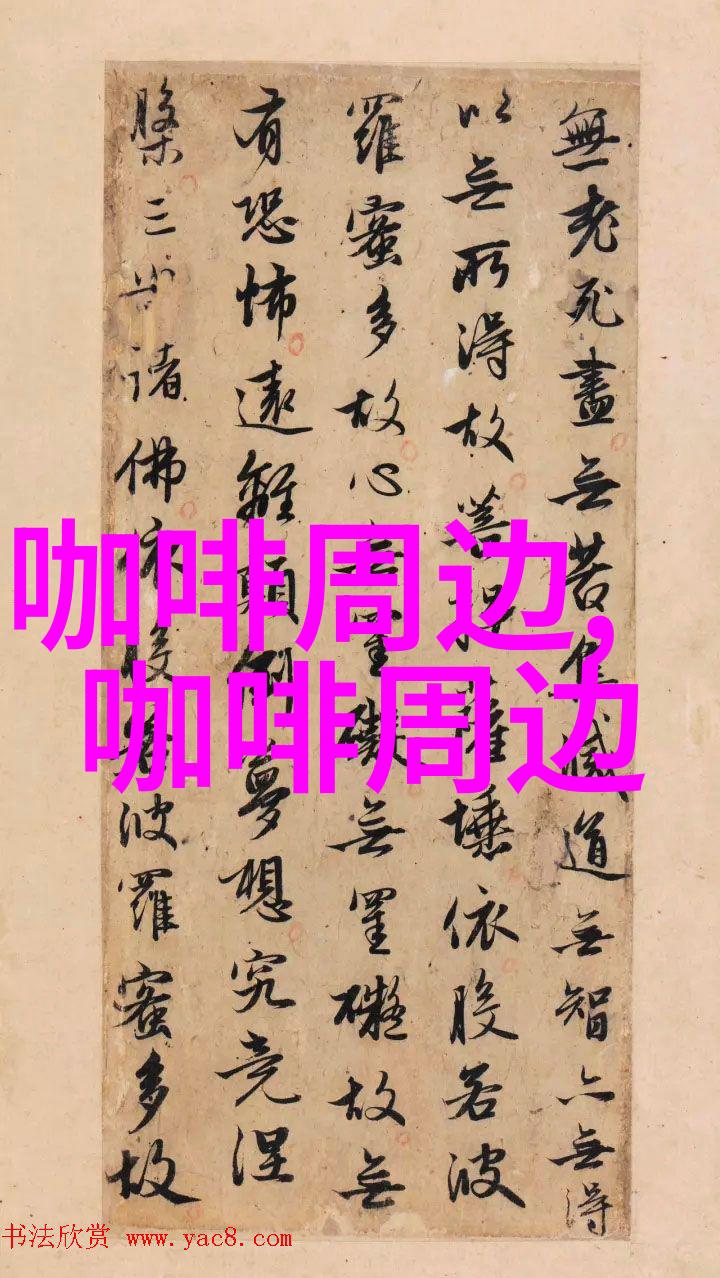 無老死盡無苦集滅道無智亦無得
以無所得故菩提薩埵依般若波
羅蜜多故心無罣礙無罣礙故無
有恐怖遠離顛倒夢想究竟涅
槃三世諸佛依般若波羅蜜多故
咖啡周边,
咖啡周边
书法欣赏 www.yac8.com